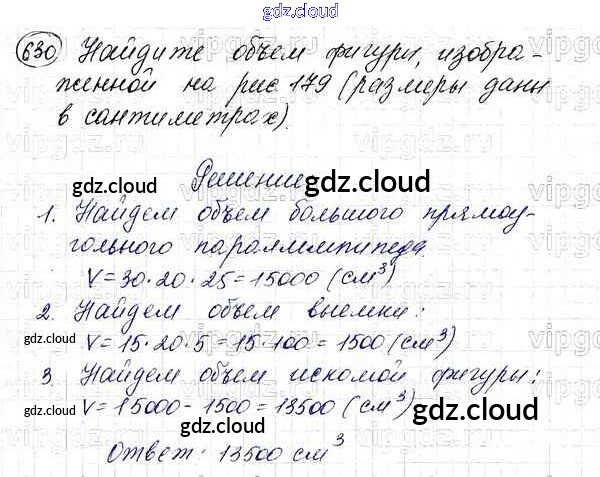 gdz.cloud
630 Найдите объем фигуры, изобра-
женной на рис 179 (размеры даны
в сантиметрах).
gdz.cloud
Решение
gdz.cloud
1. Найдем объем большого прямоу-
гольного параллелепипеда.
V = 30 · 20 · 25 = 15000 (см³)
2. Найдем объем выемки:
gdz.cloud
V = 15 · 20 · 5 = 15 · 100 = 1500 (см³)
gdz.cloud
3. Найдем объем искомой фигуры:
gdz.cloud
V = 15000 - 1500 = 13500 (см³)
gdz.cloud
Ответ: 13500 см³